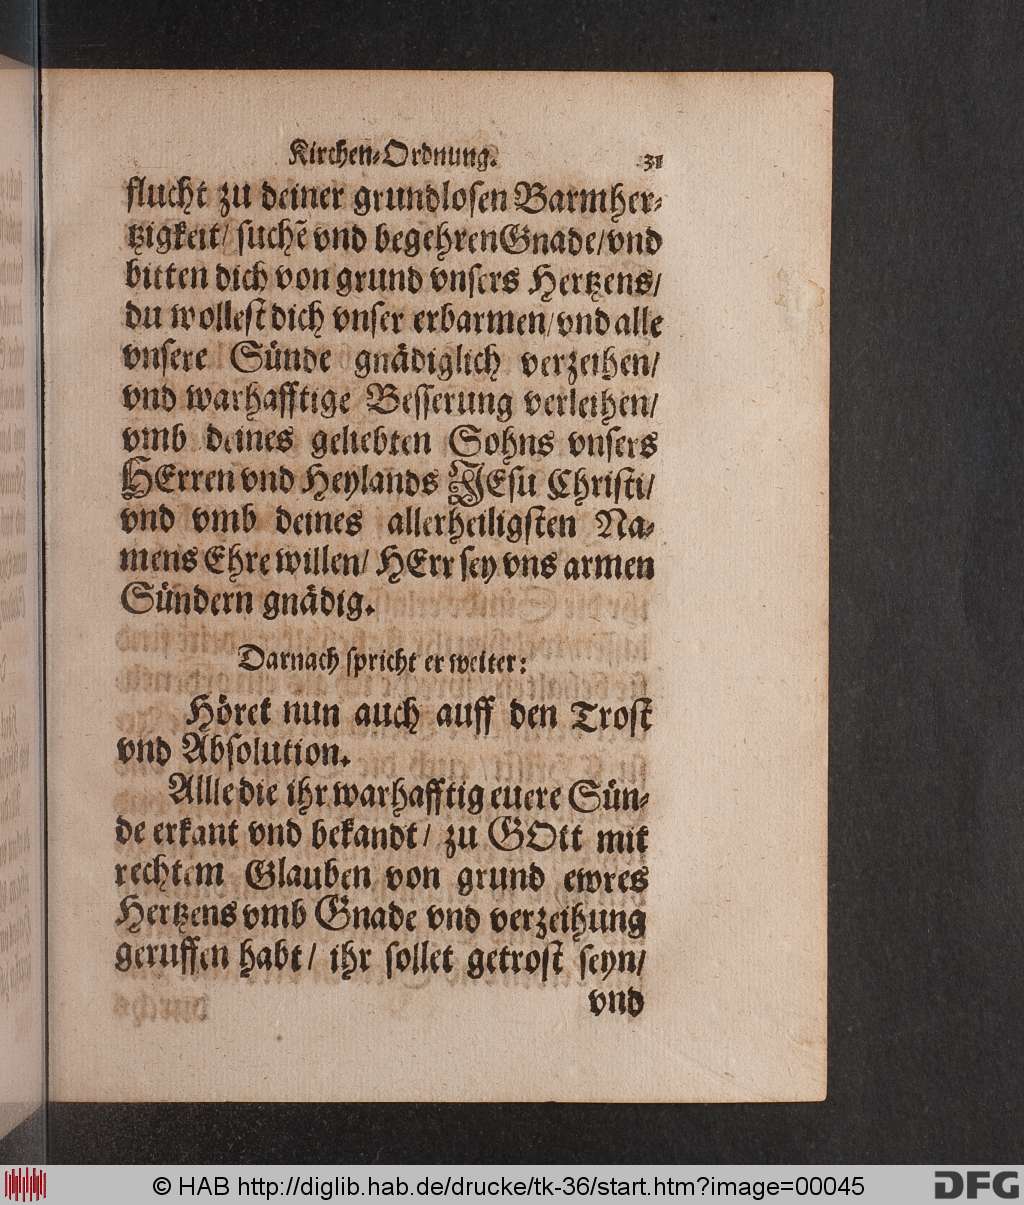 Kirchen-Ordnung. 31
flucht zu deiner grundlosen Barmher-
tzigkeit/ suchẽ vnd begehren Gnade/ vnd
bitten dich von grund vnsers Hertzens/
du wollest dich vnser erbarmen/ vnd alle
vnsere Sünde gnädiglich verzeihen/
vnd warhafftige Besserung verleihen/
vmb deines geliebten Sohns vnsers
HErren vnd Heylands JEsu Christi/
vnd vmb deines allerheiligsten Na-
mens Ehre willen/ HErr sey vns armen
Sündern gnädig.
Darnach spricht er weiter:
Höret nun auch auff den Trost
vnd Absolution.
Allle die ihr warhafftig euere Sün-
de erkant vnd bekandt/ zu GOtt mit
rechtem Glauben von grund ewres
Hertzens vmb Gnade vnd verzeihung
geruffen habt/ ihr sollet getrost seyn/
vnd
© HAB http://diglib.hab.de/drucke/tk-36/start.htm?image=00045
DFG